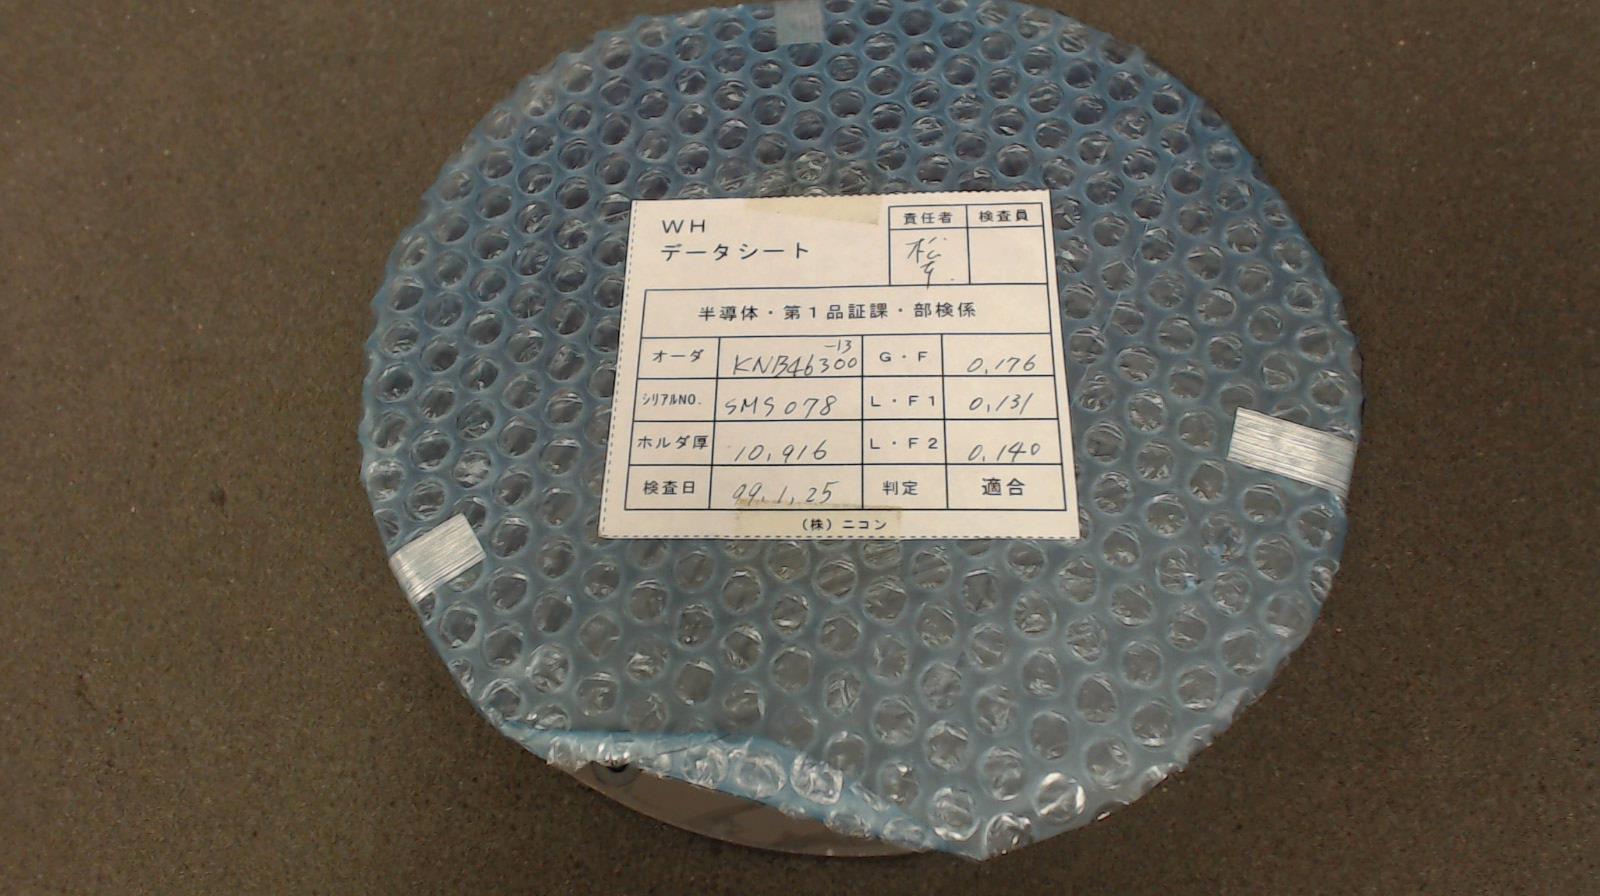 WH
データシート
責任者 検査員
松本
半導体・第1品証課・部検係
オーダ KNB46300-13 G・F 0.176
シリアルNO. SMS078 L・F1 0.131
ホルダ厚 10.916 L・F2 0.140
検査日 99.1.25 判定 適合
(株)ニコン